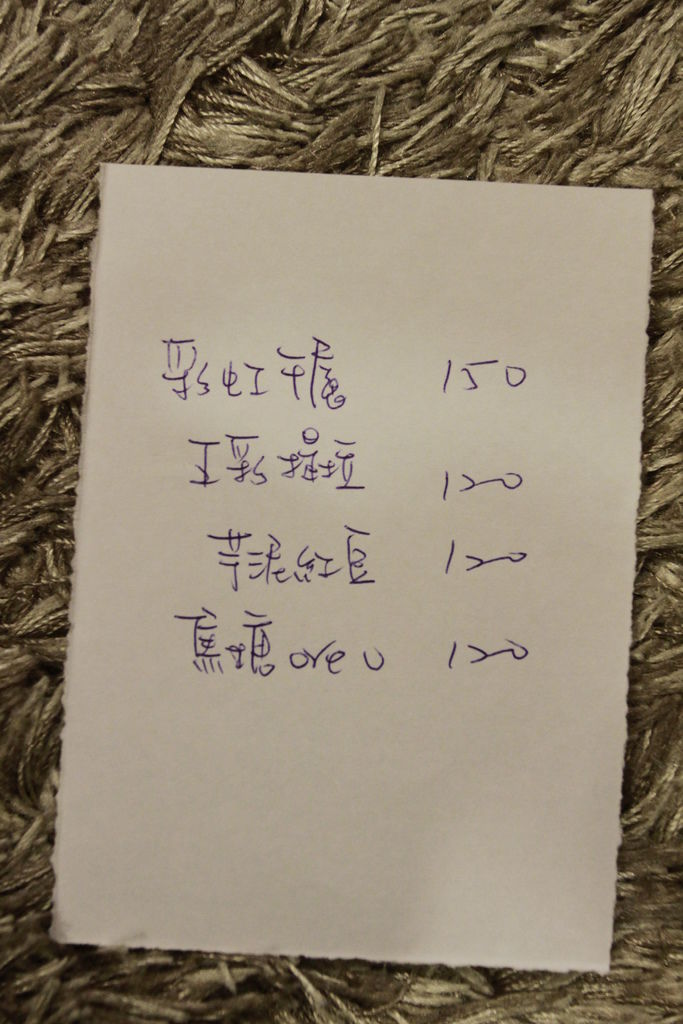 彩虹千層 150
五彩提拉 120
芋泥紅豆 120
焦糖oreo 120